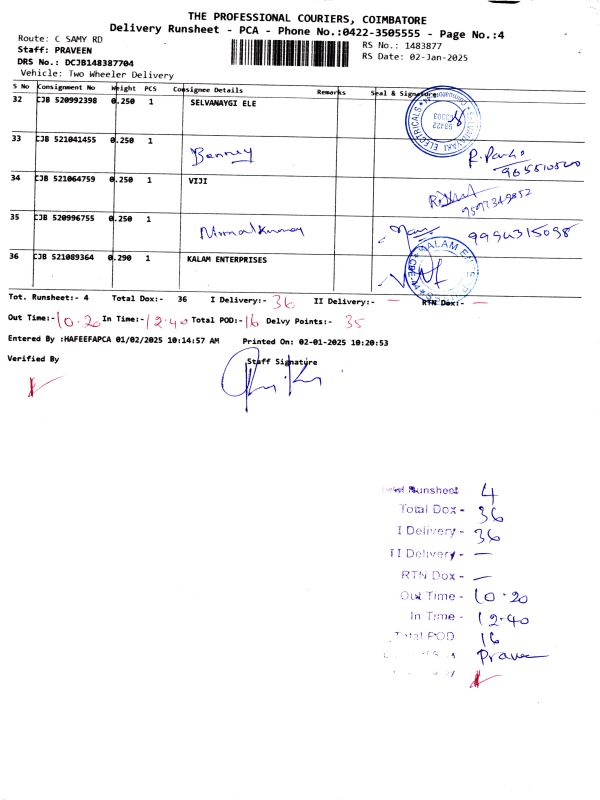 THE PROFESSIONAL COURIERS, COIMBATORE
Delivery Runsheet - PCA - Phone No.:0422-3505555 - Page No.:4
Route: C SAMY RD
RS No.: 1483877
Staff: PRAVEEN
RS Date: 02-Jan-2025
DRS No.: DCJB148387704
Vehicle: Two Wheeler Delivery
S No Consignment No Weight PCS Consignee Details Remarks Seal & Signature
32 CJB 520992398 0.250 1 SELVANAYGI ELE
33 CJB 521041455 0.250 1
34 CJB 521064759 0.250 1 VIJI
35 CJB 520996755 0.250 1
9994315098
36 CJB 521089364 0.290 1 KALAM ENTERPRISES
Tot. Runsheet:- 4 Total Dox:- 36 I Delivery:- 36 II Delivery:- — RTN Dox:- —
Out Time:- 10.20 In Time:- 12.40 Total POD:- 16 Delvy Points:- 35
Entered By :HAFEEFAPCA 01/02/2025 10:14:57 AM Printed On: 02-01-2025 10:20:53
Verified By Staff Signature
Runsheet 4
Total Dox - 36
I Delivery - 36
II Delivery - —
RTN Dox - —
Out Time - 10.20
In Time - 12.40
Total POD 16